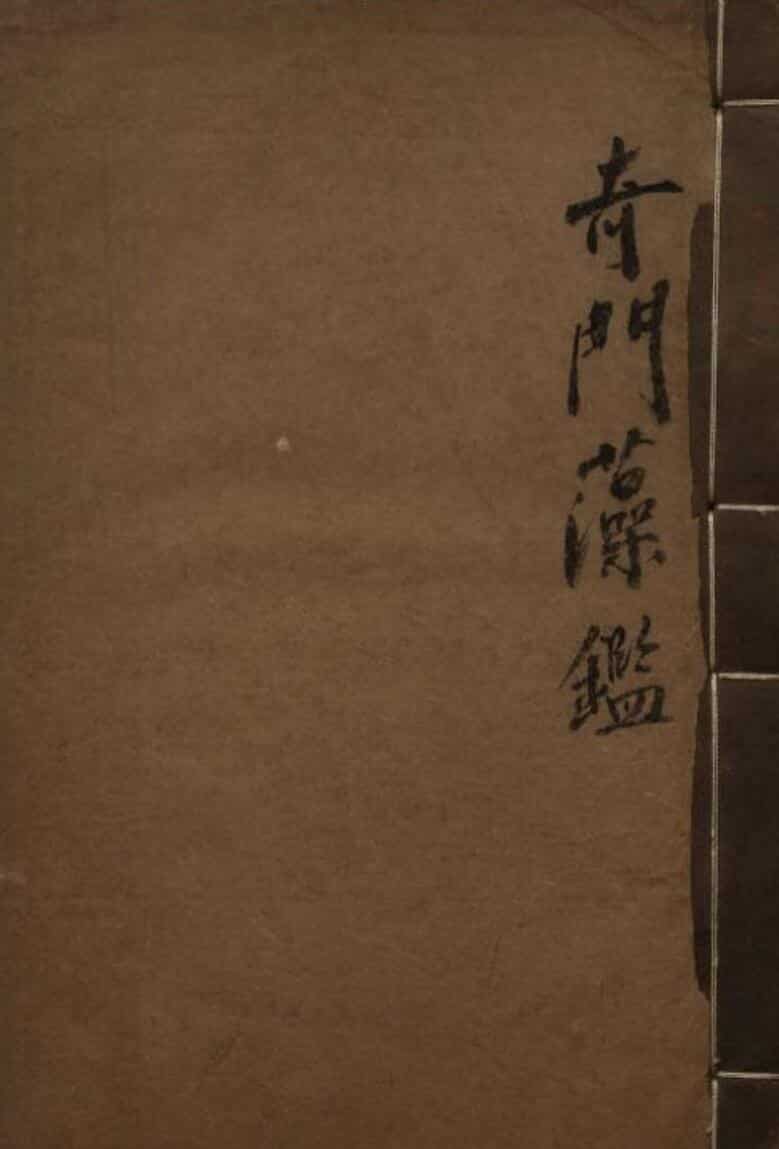 奇門藻鑑